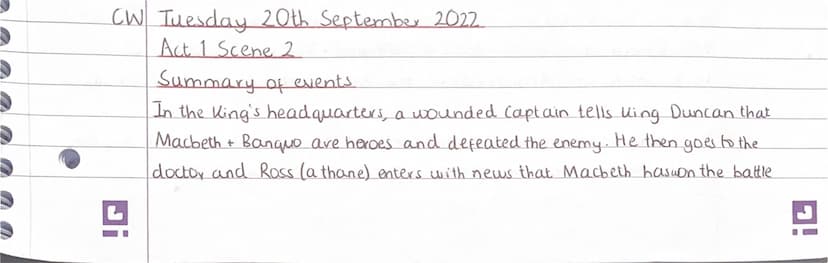 CW Tuesday 20th September 2022
Act 1 Scene 2
Summary of events
In the King's headquarters, a wounded Captain tells King Duncan that
Macbeth + Banquo are heroes and defeated the enemy. He then goes to the
doctor and Ross (a thane) enters with news that Macbeth has won the battle